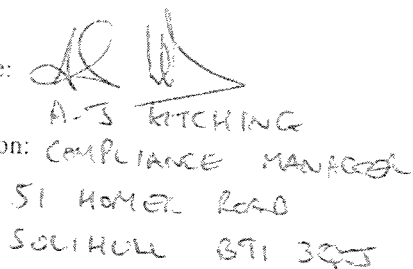 e:
A-J KITCHING
on: COMPLIANCE MANAGER
51 HOMER ROAD
SOLIHULL B91 3QJ